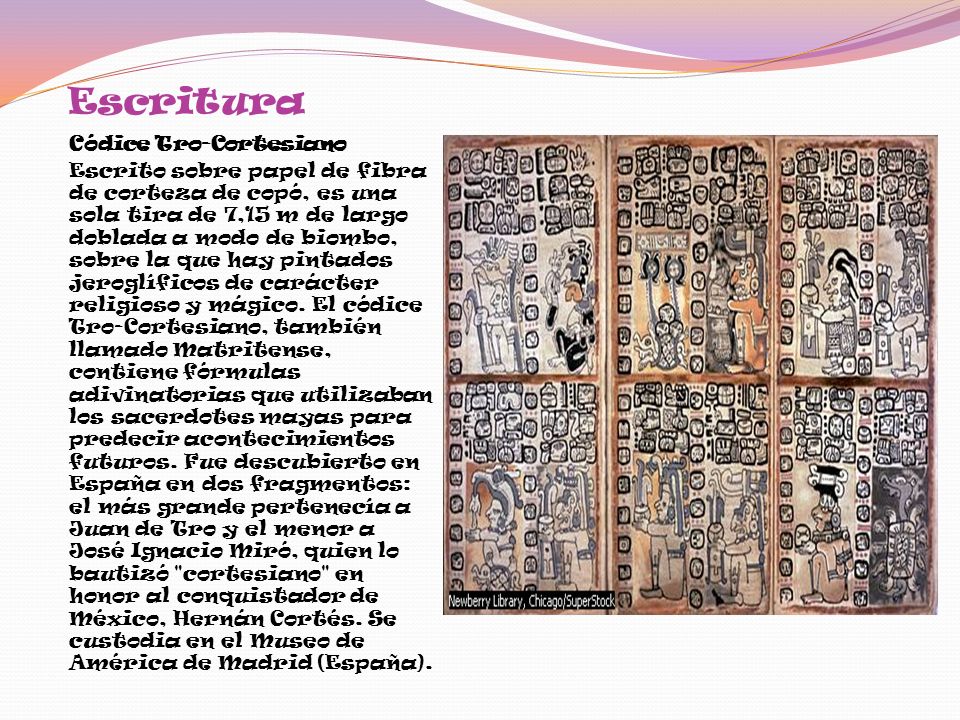 Escritura
Códice Tro-Cortesiano
Escrito sobre papel de fibra
de corteza de copó, es una
sola tira de 7,15 m de largo
doblada a modo de biombo,
sobre la que hay pintados
jeroglíficos de carácter
religioso y mágico. El códice
Tro-Cortesiano, también
llamado Matritense,
contiene fórmulas
adivinatorias que utilizaban
los sacerdotes mayas para
predecir acontecimientos
futuros. Fue descubierto en
España en dos fragmentos:
el más grande pertenecía a
Juan de Tro y el menor a
José Ignacio Miró, quien lo
bautizó "cortesiano" en
honor al conquistador de
México, Hernán Cortés. Se
custodia en el Museo de
América de Madrid (España).
Newberry Library, Chicago/SuperStock